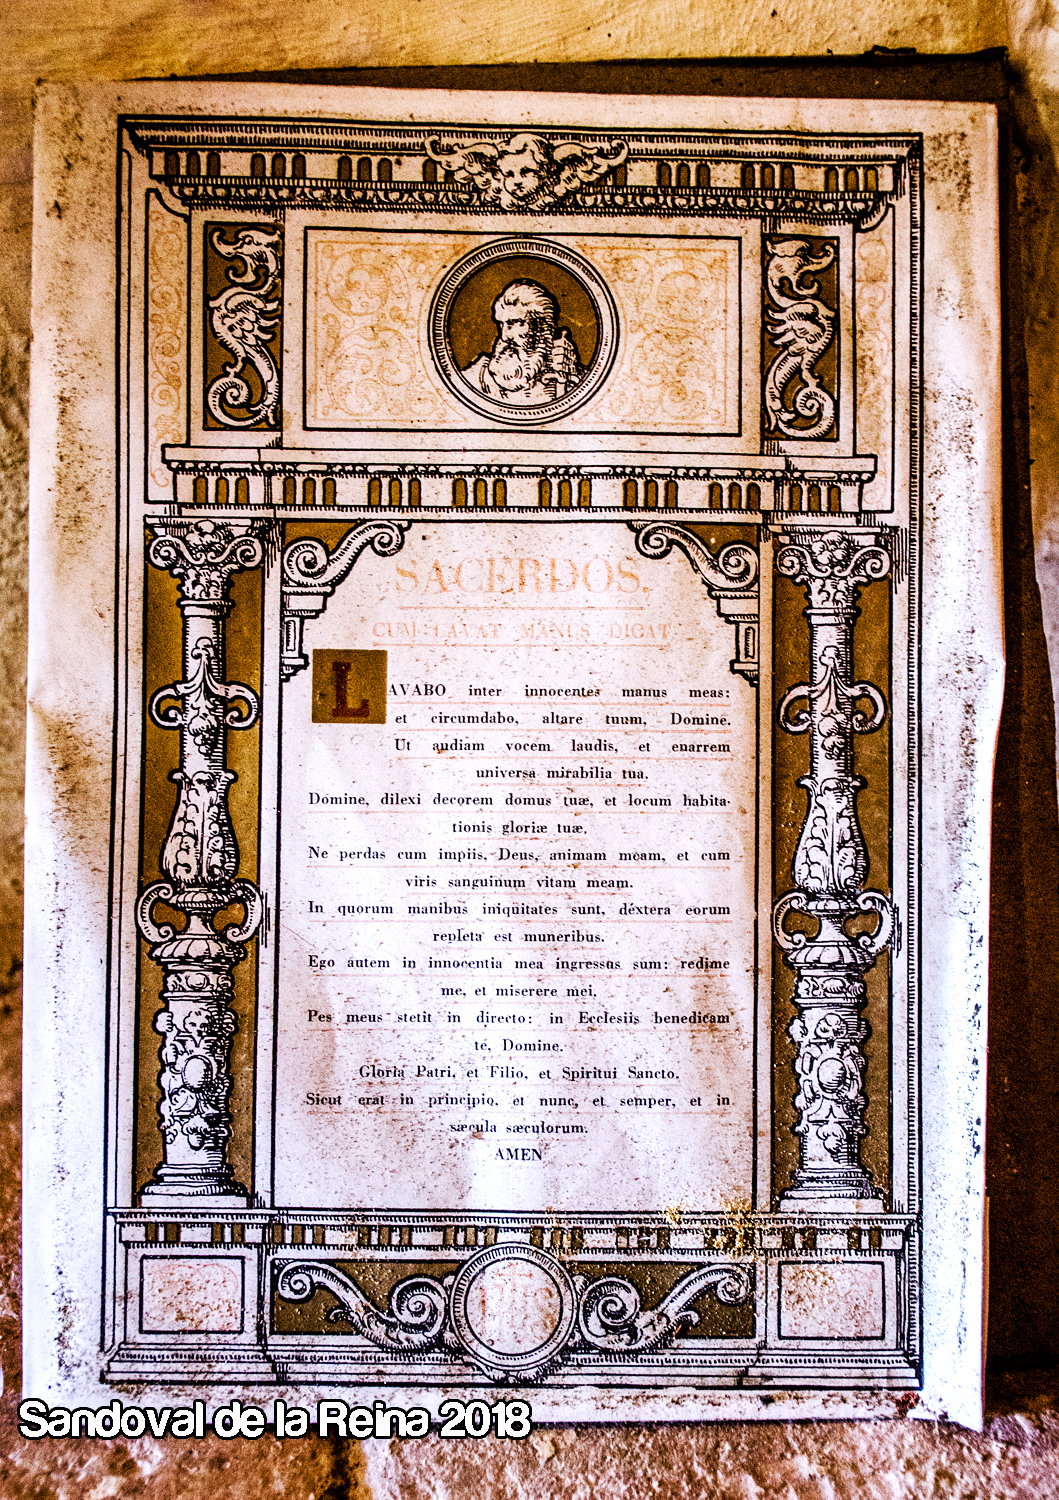 SACERDOS.
CUM LAVAT MANUS DICAT
LAVABO inter innocentes manus meas:
et circumdabo, altare tuum, Domine.
Ut audiam vocem laudis, et enarrem
universa mirabilia tua.
Domine, dilexi decorem domus tuæ, et locum habita-
tionis gloriæ tuæ.
Ne perdas cum impiis, Deus, animam meam, et cum
viris sanguinum vitam meam.
In quorum manibus iniquitates sunt, déxtera eorum
repleta est muneribus.
Ego autem in innocentia mea ingressus sum: redime
me, et miserere mei.
Pes meus stetit in directo: in Ecclesiis benedicam
te, Domine.
Gloria Patri, et Filio, et Spiritui Sancto.
Sicut erat in principio, et nunc, et semper, et in
sæcula sæculorum.
AMEN
Sandoval de la Reina 2018